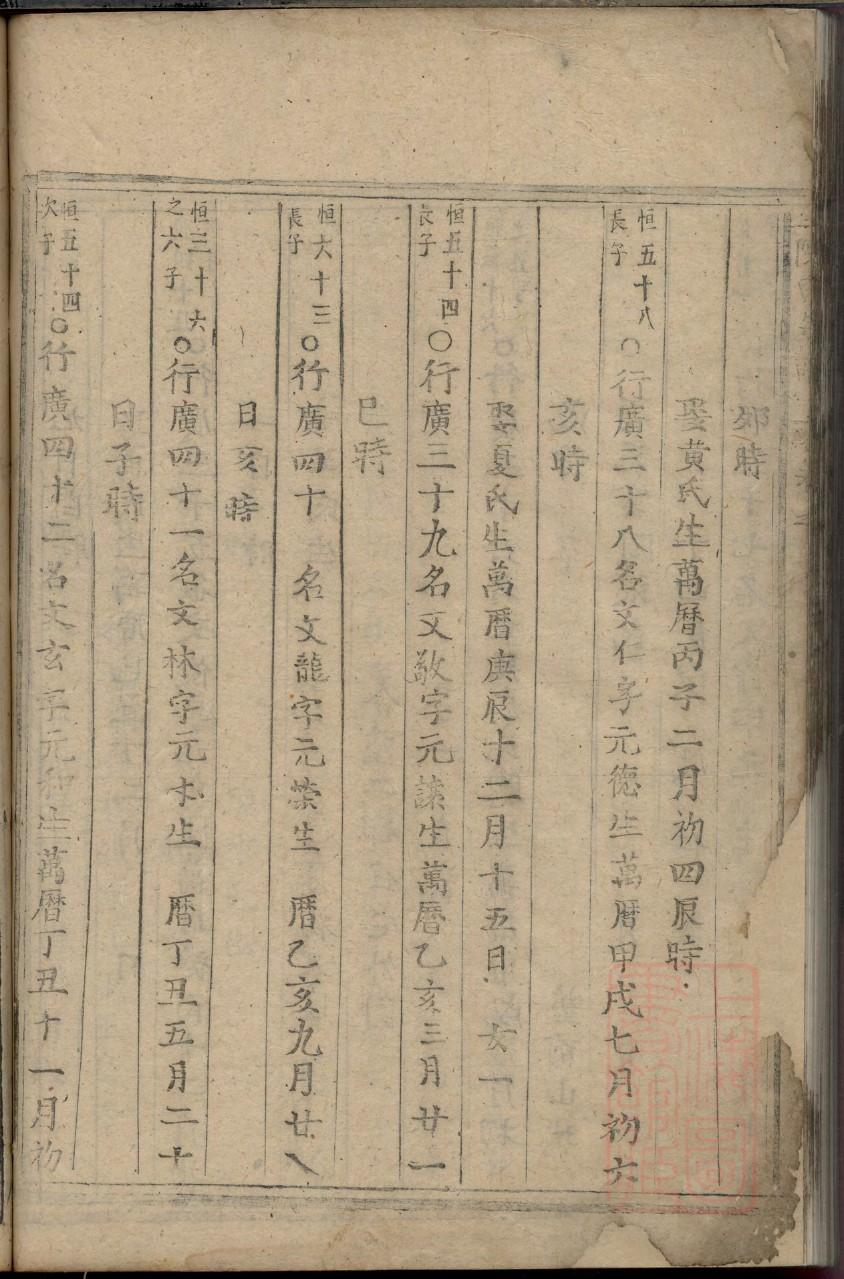 卯時
娶黃氏生萬曆丙子二月初四辰時
恒五十八
長子
○行廣三十八名文仁字元德生萬曆甲戌七月初六
亥時
娶夏氏生萬曆庚辰十二月十五日 女一
恒五十四
長子
○行廣三十九名文敬字元讓生萬曆乙亥三月廿一
巳時
恒六十三
長子
○行廣四十 名文龍字元榮生 曆乙亥九月廿八
日亥時
恒三十六
之六子
○行廣四十一名文林字元木生 曆丁丑五月二十
日子時
恒五十四
次子
○行廣四十二名文玄字元和生萬曆丁丑十一月初